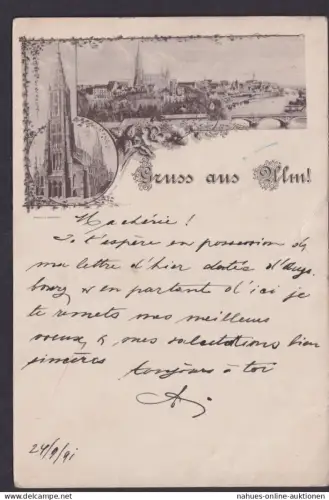 Gruss aus Ulm!
Ma chérie!
Je t'espère en possession de
ma lettre d'hier datée d'Augs-
bourg & en partant d'ici je
te remets mes meilleurs
voeux & mes salutations bien
sincères toujours à toi
24/9/91
nahues-online-auctions.com